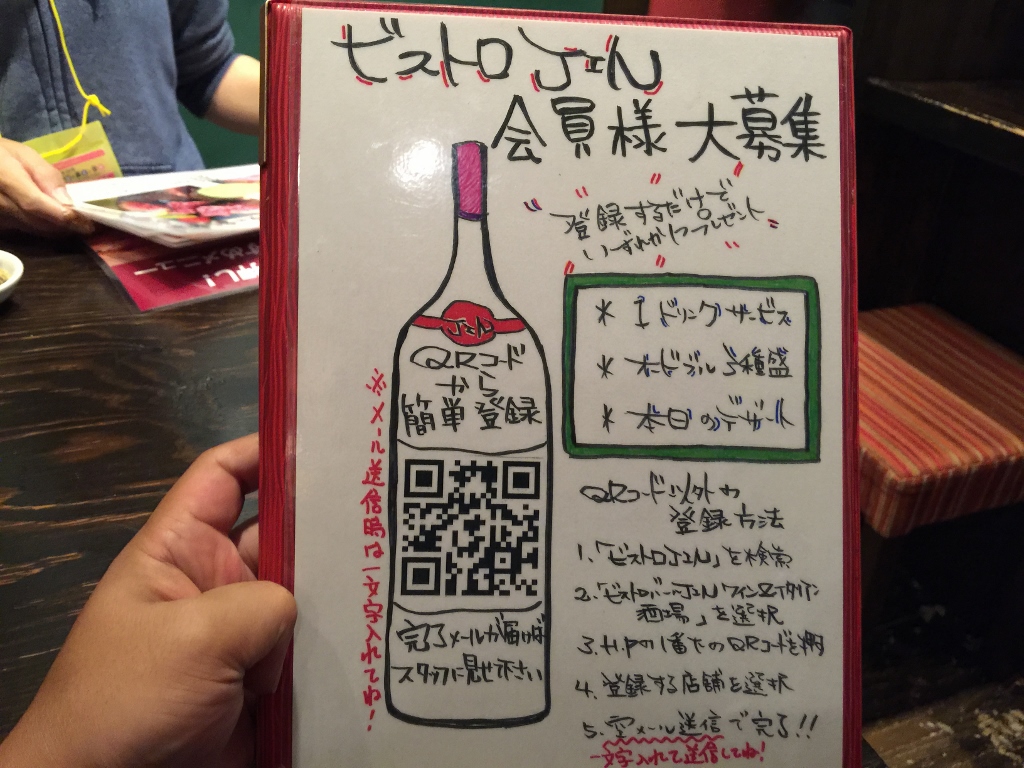 ビストロJEん
会員様 大募集
登録するだけで
いずれか1つプレゼント
* 1ドリンクサービス
* オードブル5種盛
* 本日のデザート
JEん
QRコード
から
簡単登録
完了メールが届けば
スタッフに見せ下さい
※メール送信時は一文字入れてね!
QRコード以外の
登録方法
1.「ビストロJEん」を検索
2.「ビストロバーJEんワイン&イタリアン
酒場」を選択
3. H.Pの1番下のQRコードを押
4. 登録する店舗を選択
5. 空メール送信で完了!!
一文字入れて送信してね!
すめメニュー